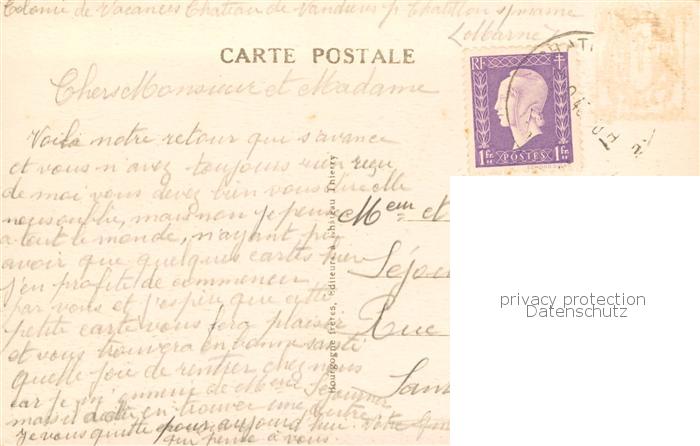 Colonie de Vacances Chateau de Vandières p Chatillon s/marne
(Marne)
CARTE POSTALE
RF
1Fr POSTES 1Fr
CHATI
Chers Monsieur et Madame
Voila notre retour qui s'avance
et vous n'avez toujours rien reçu
de moi vous devez bien vous dire elle
nous oublie, mais non je pense
a tout le monde, n'ayant pu
avoir que quelques cartes hier
j'en profite de commencer
par vous et j'espère que cette
petite carte vous fera plaisir
et vous trouvera en bonne santé
quelle joie de rentrer chez nous
car je m'ennuie de
mais il doit en trouver une autre
Je vous quitte pour aujourd'hui. Votre
qui pense à vous.
Bourgogne frères, Editeurs à Château Thierry
Meur et
Séjou
Rue
Sam
privacy protection
Datenschutz